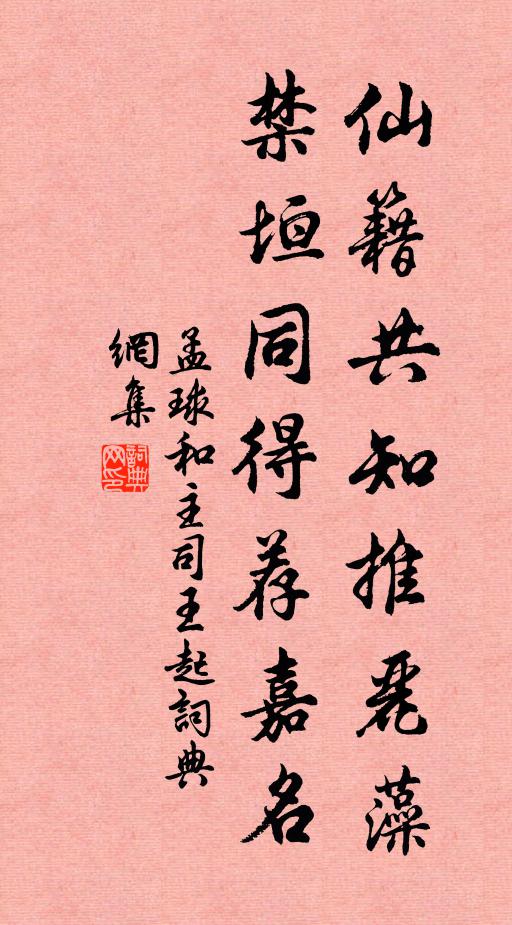 仙籍共知推麗藻
禁垣同得荐嘉名
孟球和主司王起詞典
網集
詞典
网印